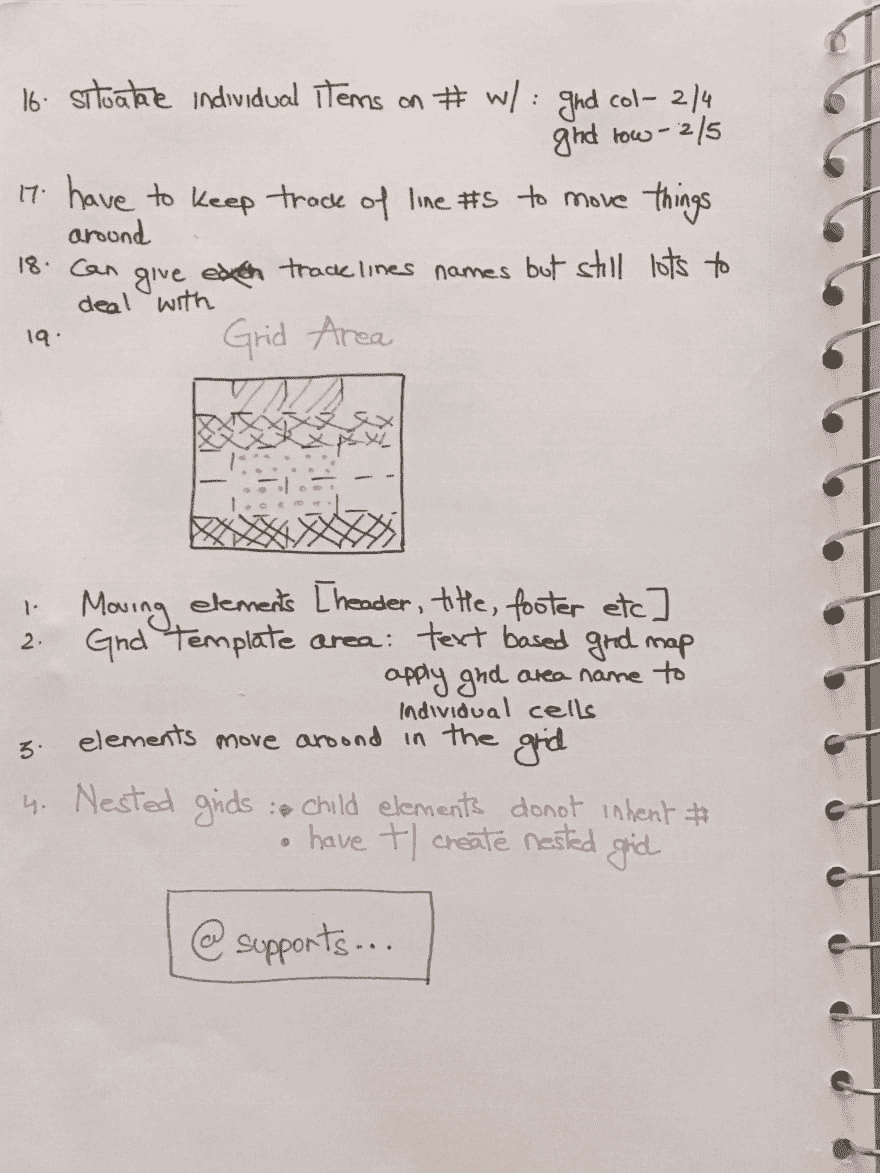 16. situatae individual items on # w/ : grid col- 2/4
grid row - 2/5
17. have to keep track of line #s to move things
around
18. can give track lines names but still lots to
deal with
19. Grid Area
1. Moving elements [header, title, footer etc]
2. Grid Template area: text based grid map
apply grid area name to
individual cells
3. elements move around in the grid
4. Nested grids : • child elements donot inherit #
• have t/ create nested grid
@ supports...